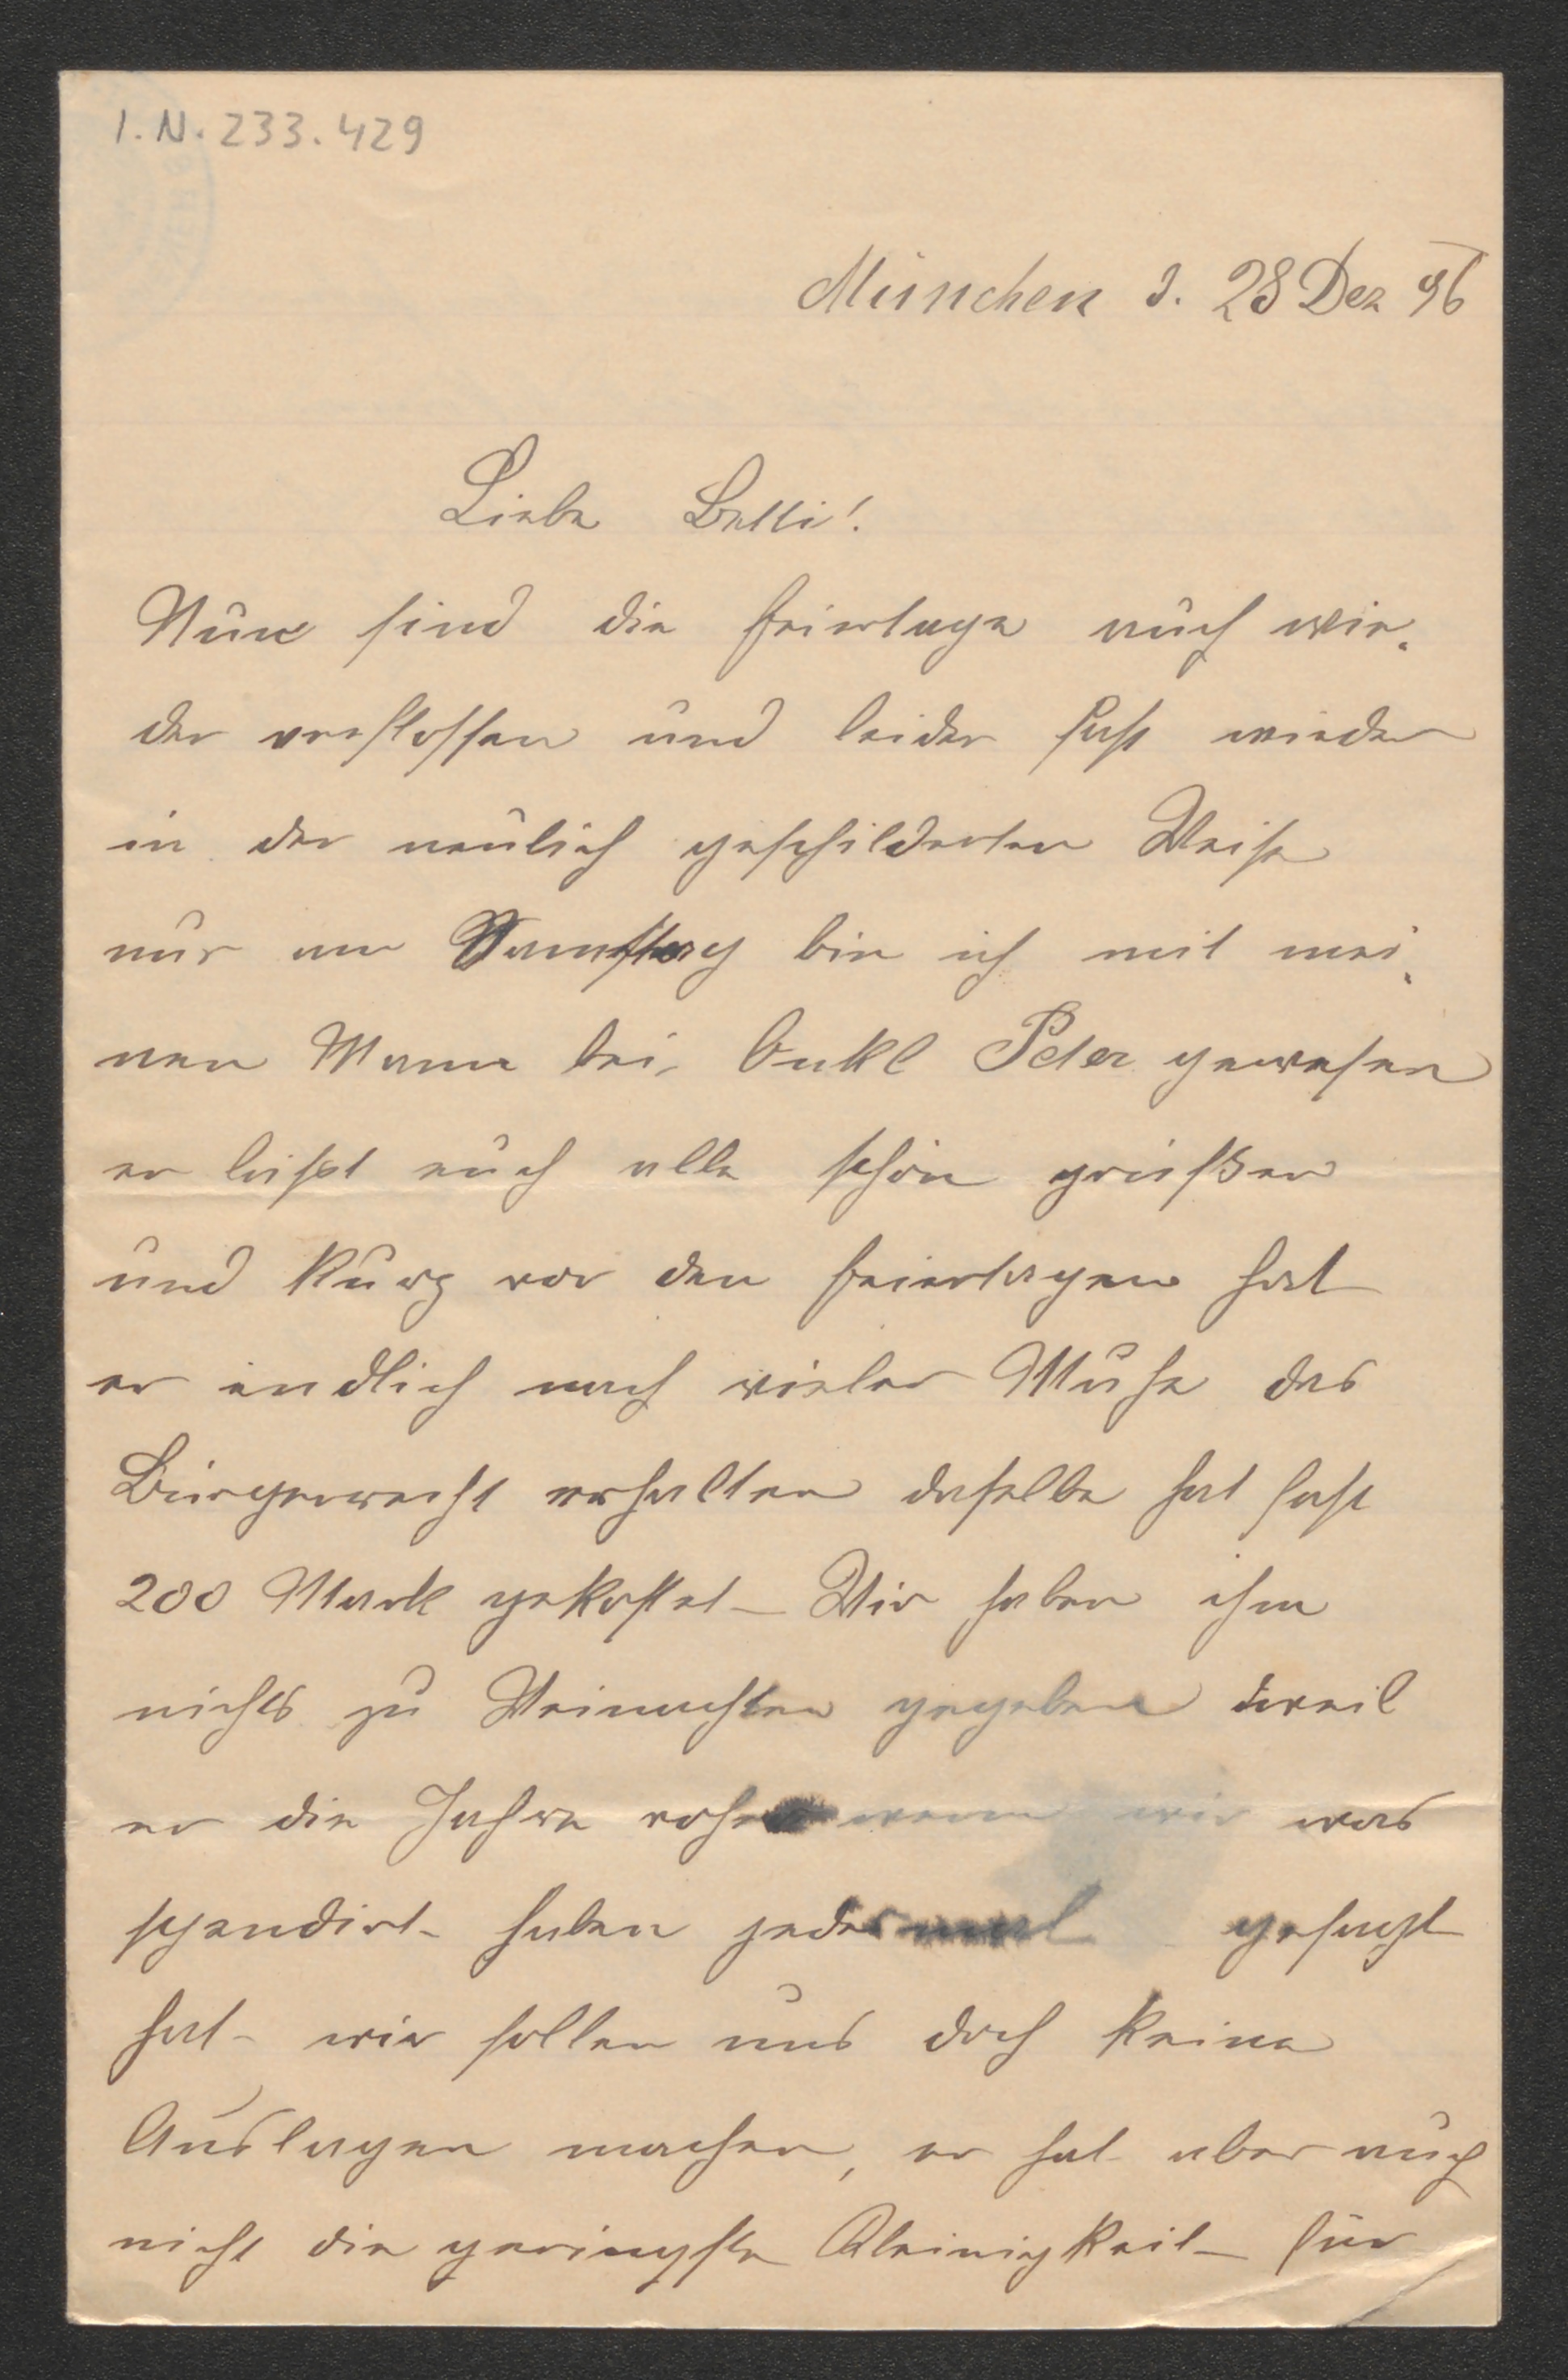 I.N. 233.429
München d. 28 Dez 96
Liebe Betti!
Nun sind die Feiertage auch wie-
der verflossen und leider fast wieder
in der neulich geschilderten Weise
nur am Samstag bin ich mit mei-
nen Mann bei Onkl Peter gewesen
er läßt euch alle schön grüßen
und kurz vor den Feiertagen hat
er endlich nach vieler Muhe das
Bürgerrecht erhalten daselbe hat fast
200 Mark gekostet – Wir haben ihm
nichts zu Weinachten gegeben weil
er die Jahre vorher wenn wir was
spendirt haben jedesmal gesagt
hat wir sollen uns doch keine
Auslagen machen, er hat aber auch
nicht die geringste Kleinigkeit für